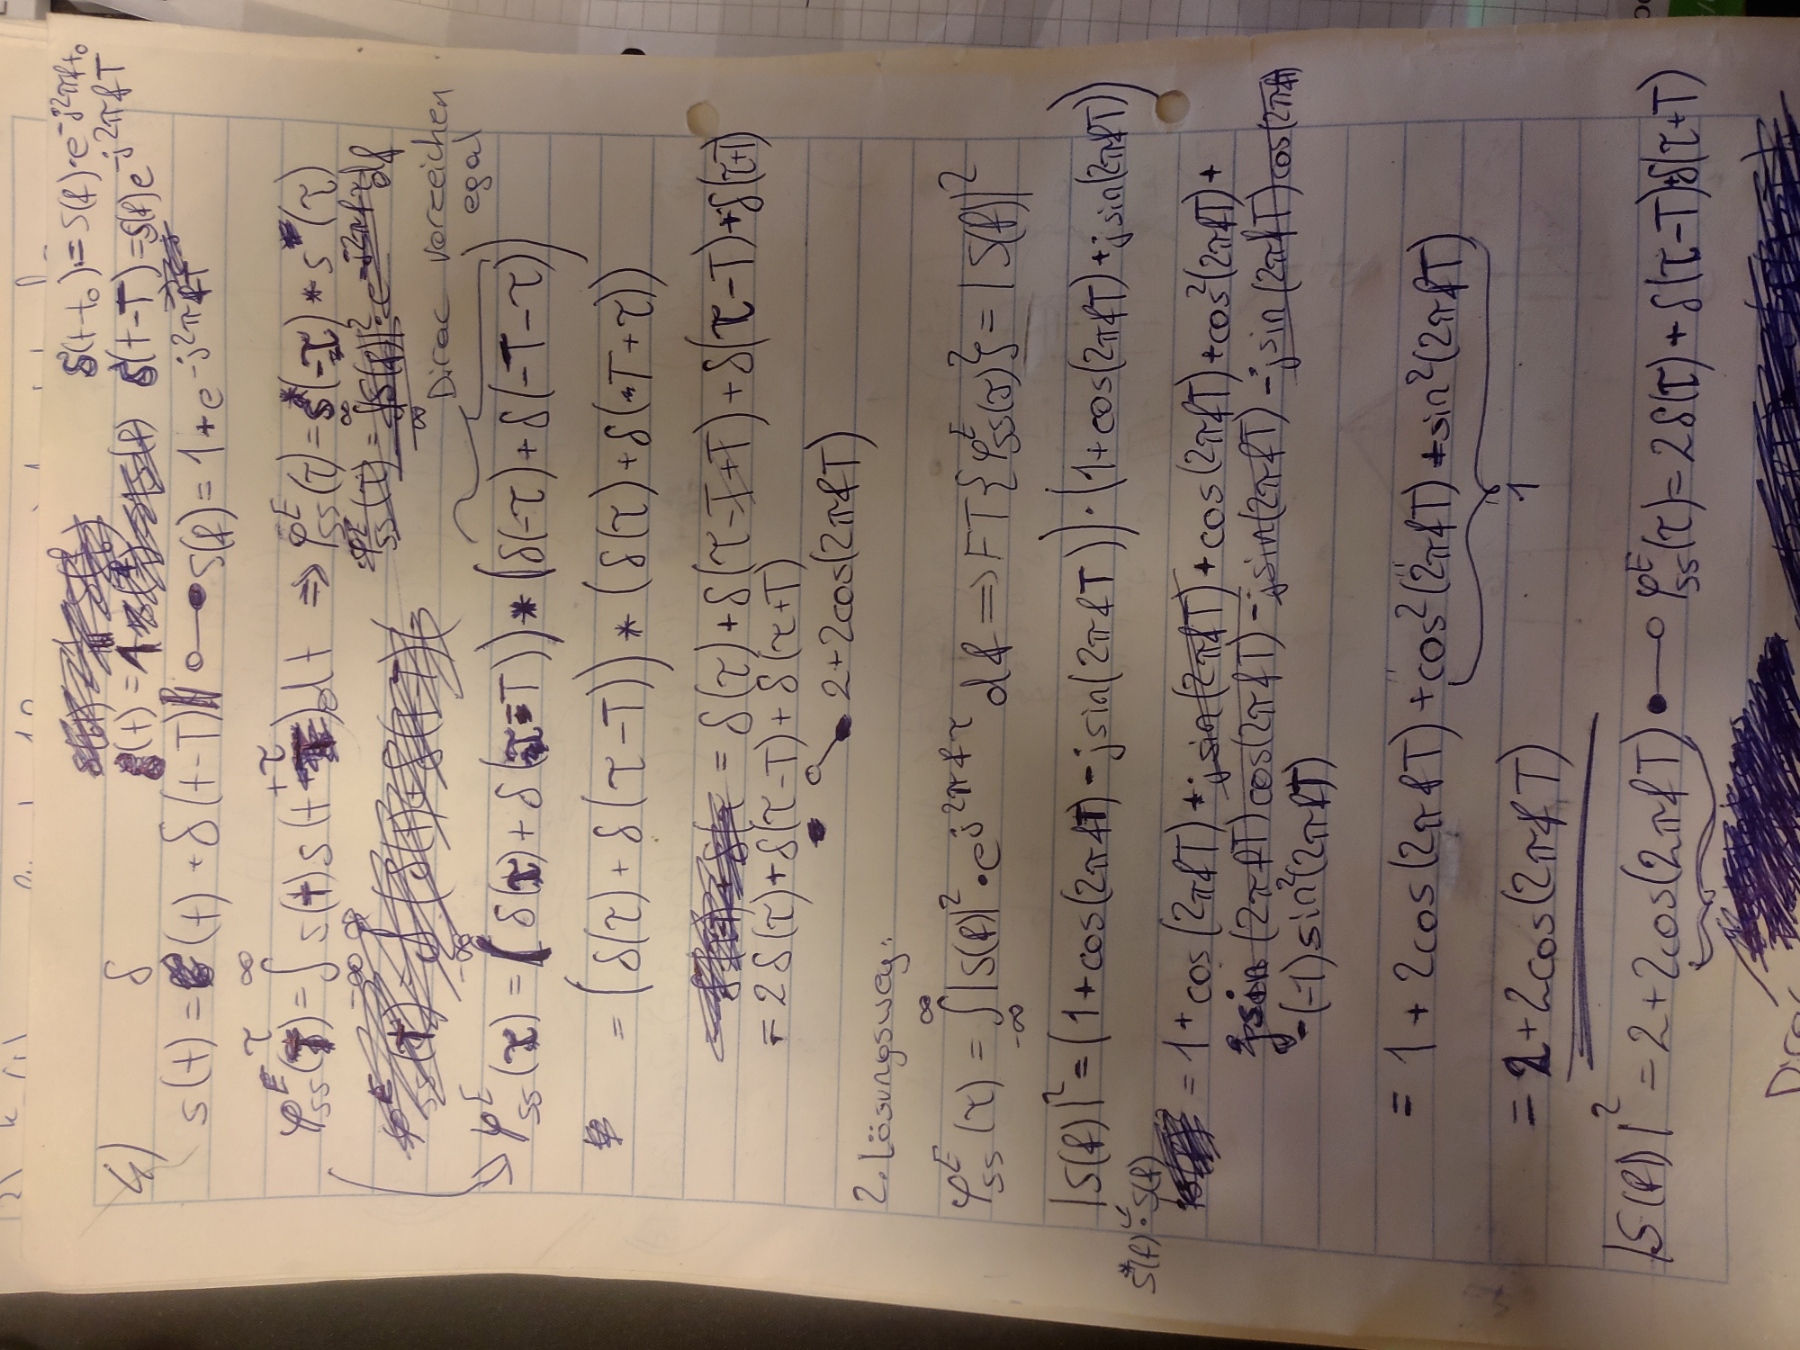 δ(t-t₀) = S(f)·e^{-j2πft₀}
4) δ δ(t) = 1 δ(t-T) = S(f)e^{-j2πfT}
s(t) = (t) + δ(t-T) ○—● S(f) = 1 + e^{-j2πfT}
φ_{ss}^E(τ) = ∫_{-∞}^{∞} s(t) s(t+τ) dt ⇒ φ_{ss}^E(τ) = s*(-τ) * s(τ)
Dirac Vorzeichen
egal
φ_{ss}^E(τ) = (δ(τ) + δ(τ-T)) * (δ(-τ) + δ(-T-τ))
= (δ(τ) + δ(τ-T)) * (δ(τ) + δ(T+τ))
= δ(τ) + δ(τ-T+T) + δ(τ-T) + δ(τ+T)
= 2δ(τ) + δ(τ-T) + δ(τ+T)
○—● 2+2cos(2πfT)
2. Lösungsweg:
φ_{ss}^E(τ) = ∫_{-∞}^{∞} |S(f)|² · e^{j2πfτ} df ⇒ FT{φ_{ss}^E(τ)} = |S(f)|²
|S(f)|² = (1+cos(2πfT) - jsin(2πfT))·(1+cos(2πfT) + jsin(2πfT))
S*(f)·S(f)
= 1 + cos(2πfT) + jsin(2πfT) + cos(2πfT) + cos²(2πfT) +
jsin(2πfT)cos(2πfT) - jsin(2πfT) - jsin(2πfT)cos(2πfT)
-(-1)sin²(2πfT)
= 1 + 2cos(2πfT) + cos²(2πfT) + sin²(2πfT)
1
= 2+2cos(2πfT)
|S(f)|² = 2+2cos(2πfT) ●—○ φ_{ss}^E(τ) = 2δ(τ) + δ(τ-T)+δ(τ+T)
Dirac